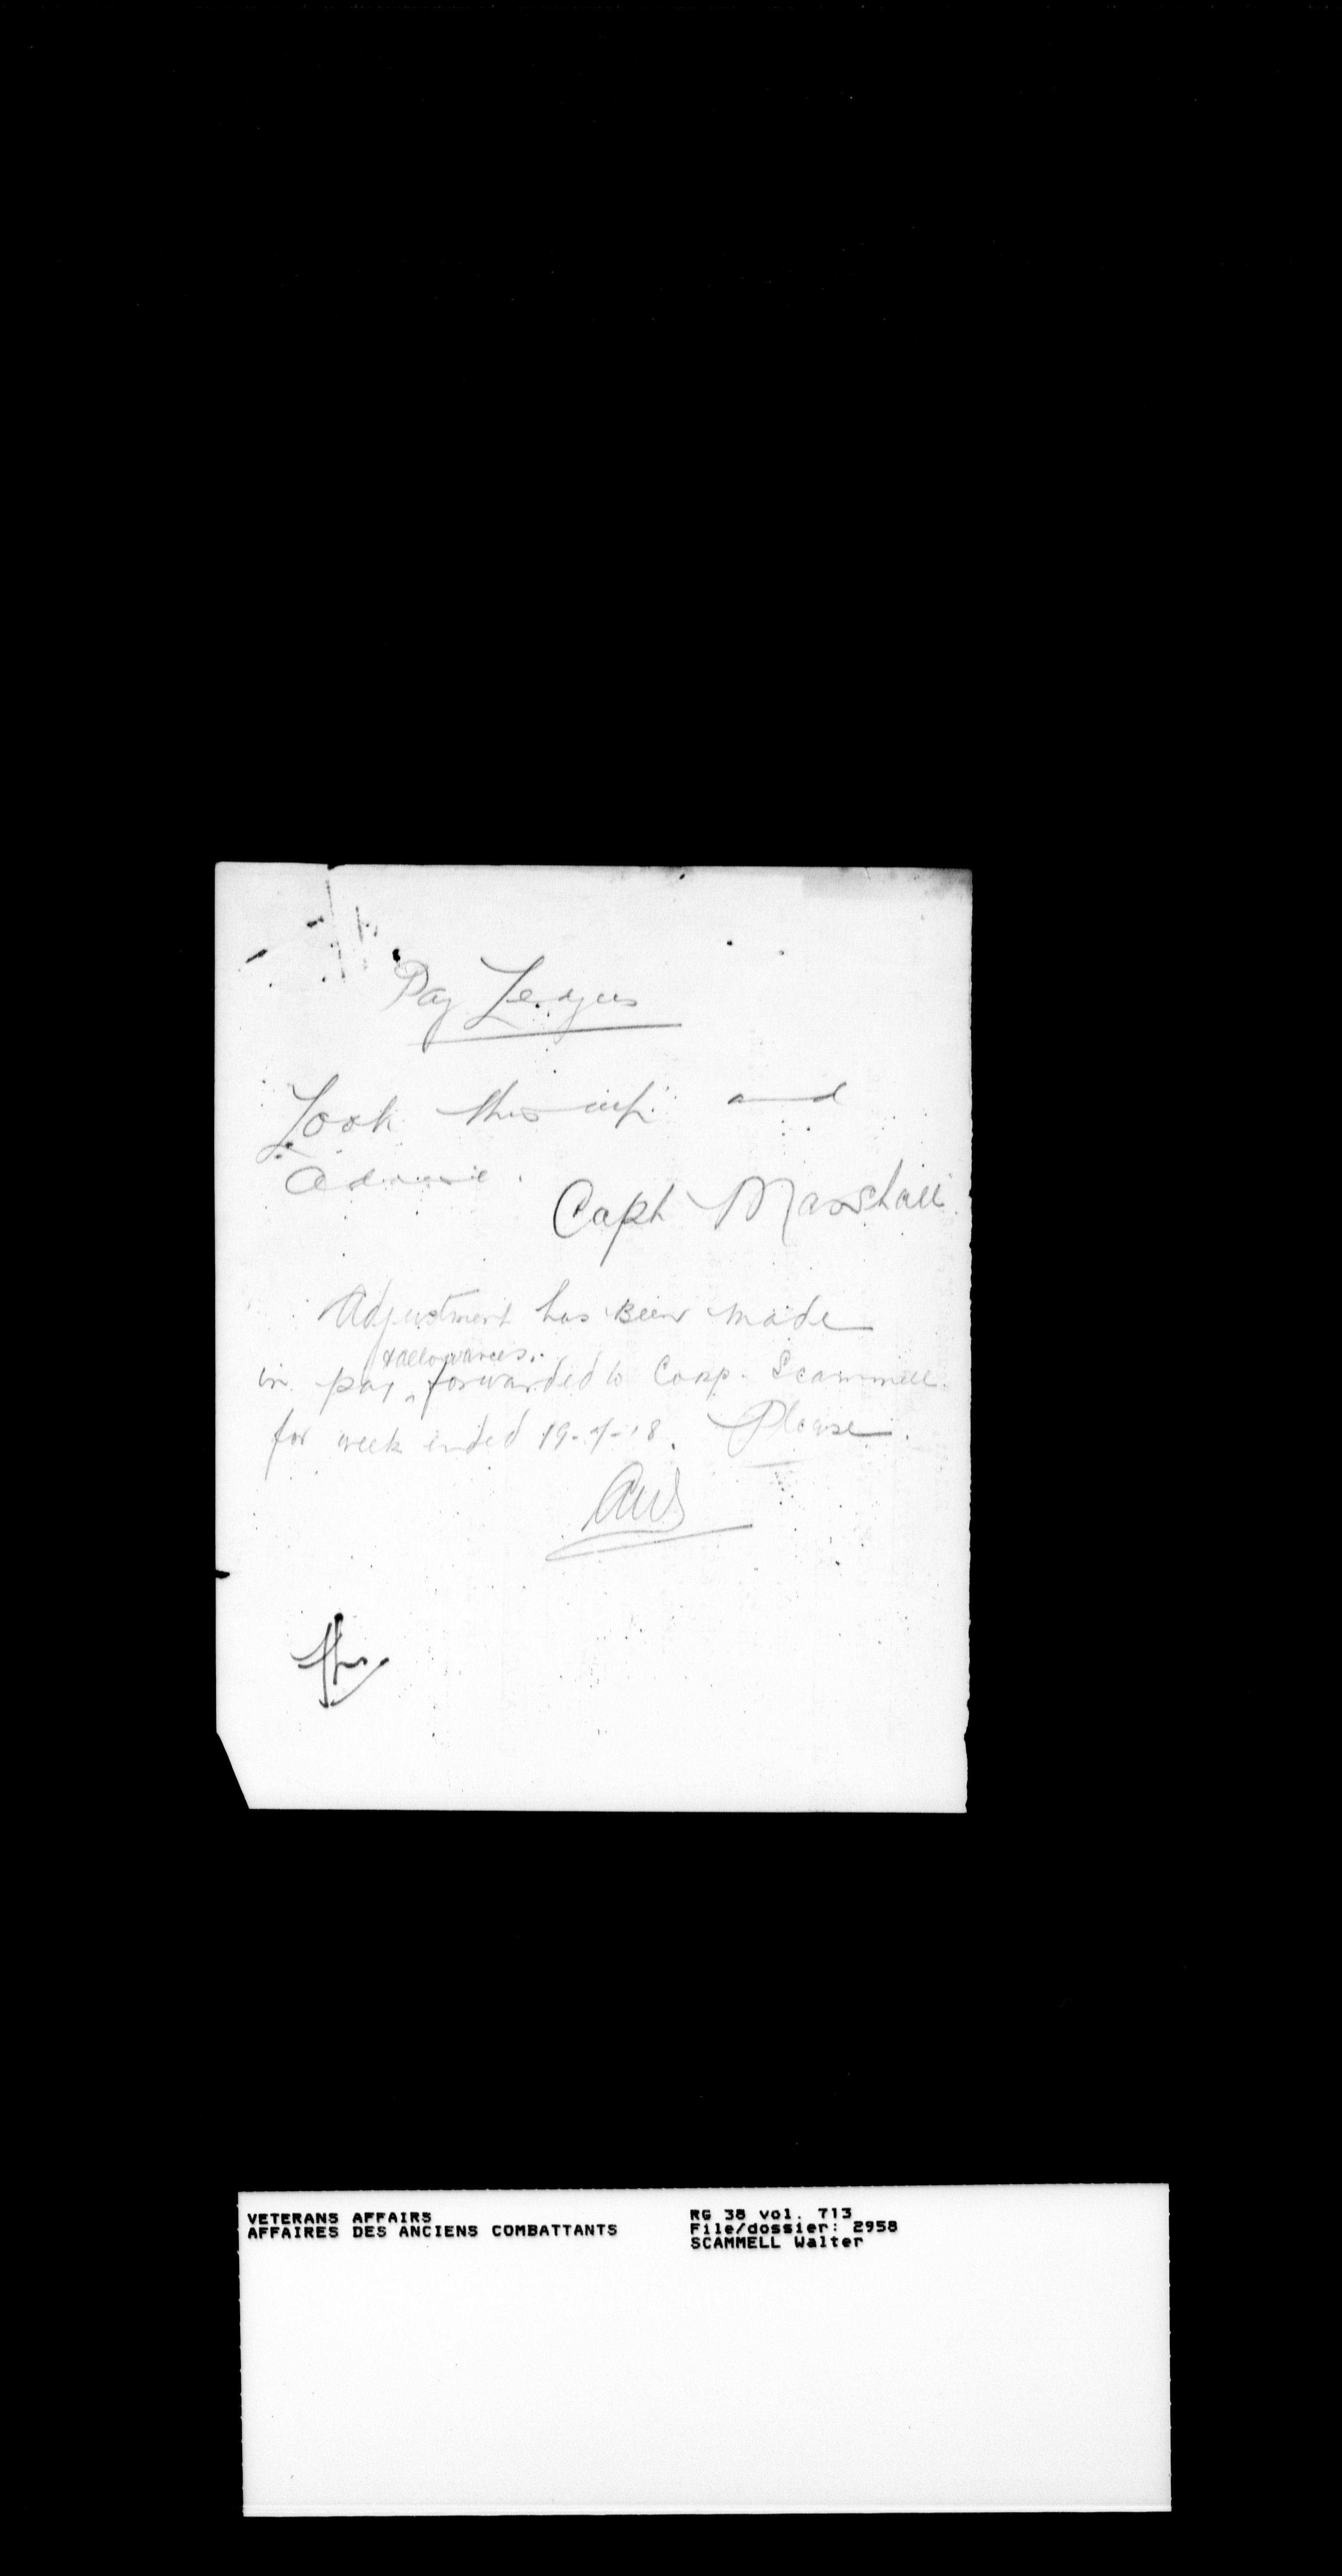 Pay Ledgers
Look this up and
advise.
Capt Marshall.
Adjustment has Been made
& allowances.
in pay ‸ forwarded to Corp. Scammell.
for week ended 19-7-18. Please.
VETERANS AFFAIRS
AFFAIRES DES ANCIENS COMBATTANTS
RG 38 vol. 713
File/dossier: 2958
SCAMMELL Walter